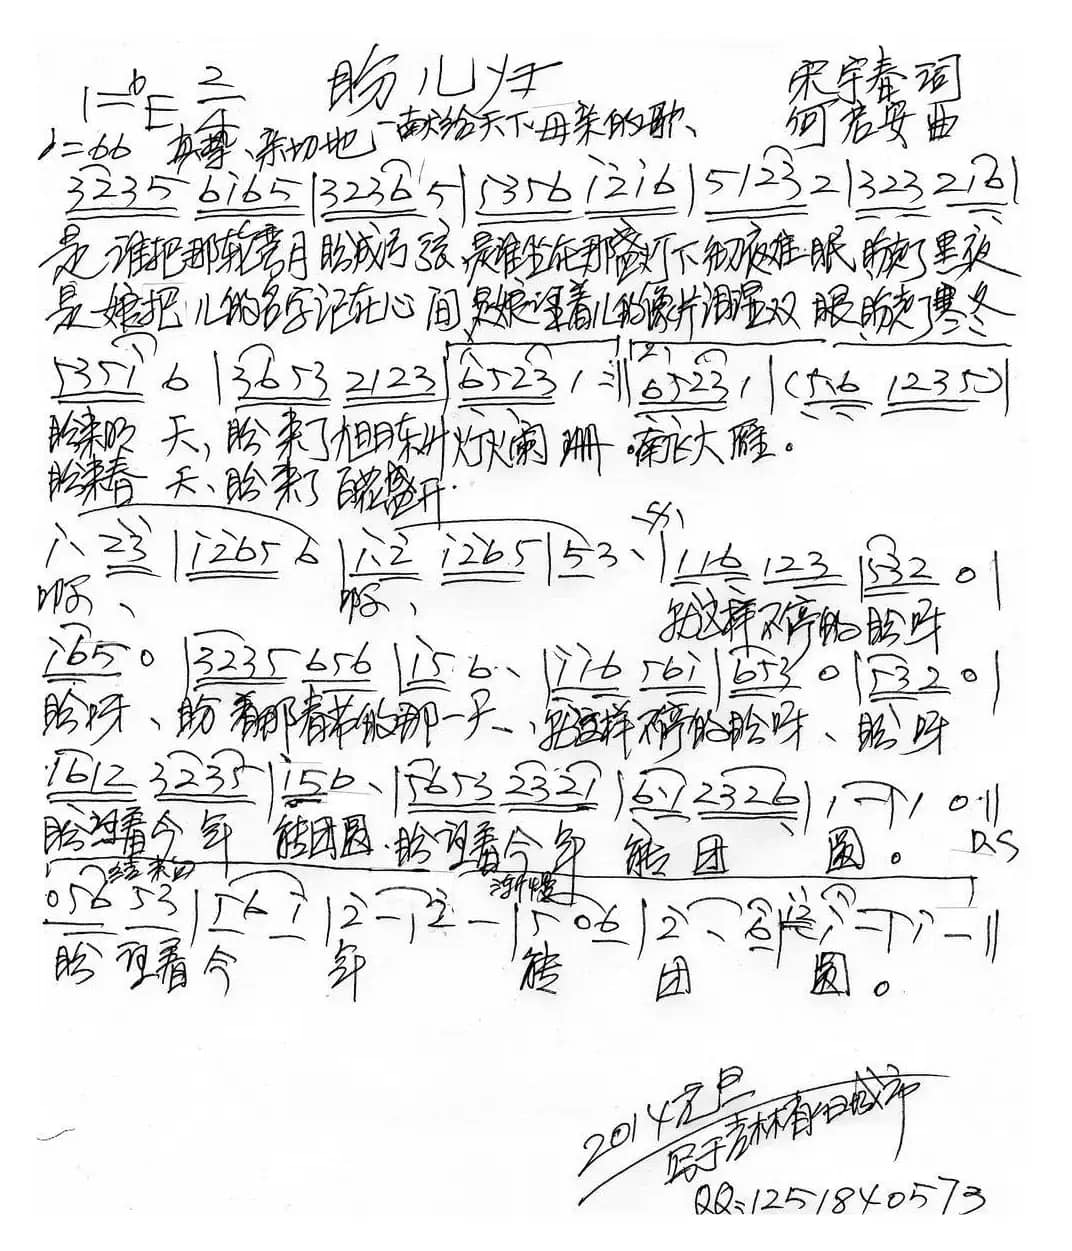 盼儿归
1=♭E 2/4
宋宇春 词
—献给天下母亲的歌
何彦安 曲
♩=66 真挚、亲切地
3235 6i65|3236 5|5356 i2i6|5123 2|323 2i6|
是谁把那轮弯月盼成弓弦 是谁坐在那盏灯下彻夜难眠 盼走了黑夜
是娘把儿的名字记在心间 是娘望着儿的像片泪湿双眼 盼走了寒冬
535i 6|3653 2123|6523 1:‖6523 1|(5.6 1235)|
盼来明天,盼来了旭日东升 灯火阑珊。南飞大雁。
盼来春天、盼来了百花盛开
i、23|i265 6|i.2 i265|53、|116 123|532 0|
啊、 啊、 就这样不停的盼呀
i65 0|3235 656|i5 6、|ii6 56i|653 0|532 0|
盼呀、盼着那春节的那一天、就这样不停的盼呀、盼呀
i612 3235|i56、|5653 2321|6.1 2326|1—|1 0‖
盼望着今年能团圆.盼望着今年能团圆。 D.S
结束句 渐慢
056 53|56i|2—|2—|5 06|2、6|i—|i—‖
盼望着今年能团圆。
2014元旦
写于吉林省白城市
QQ:1251840573